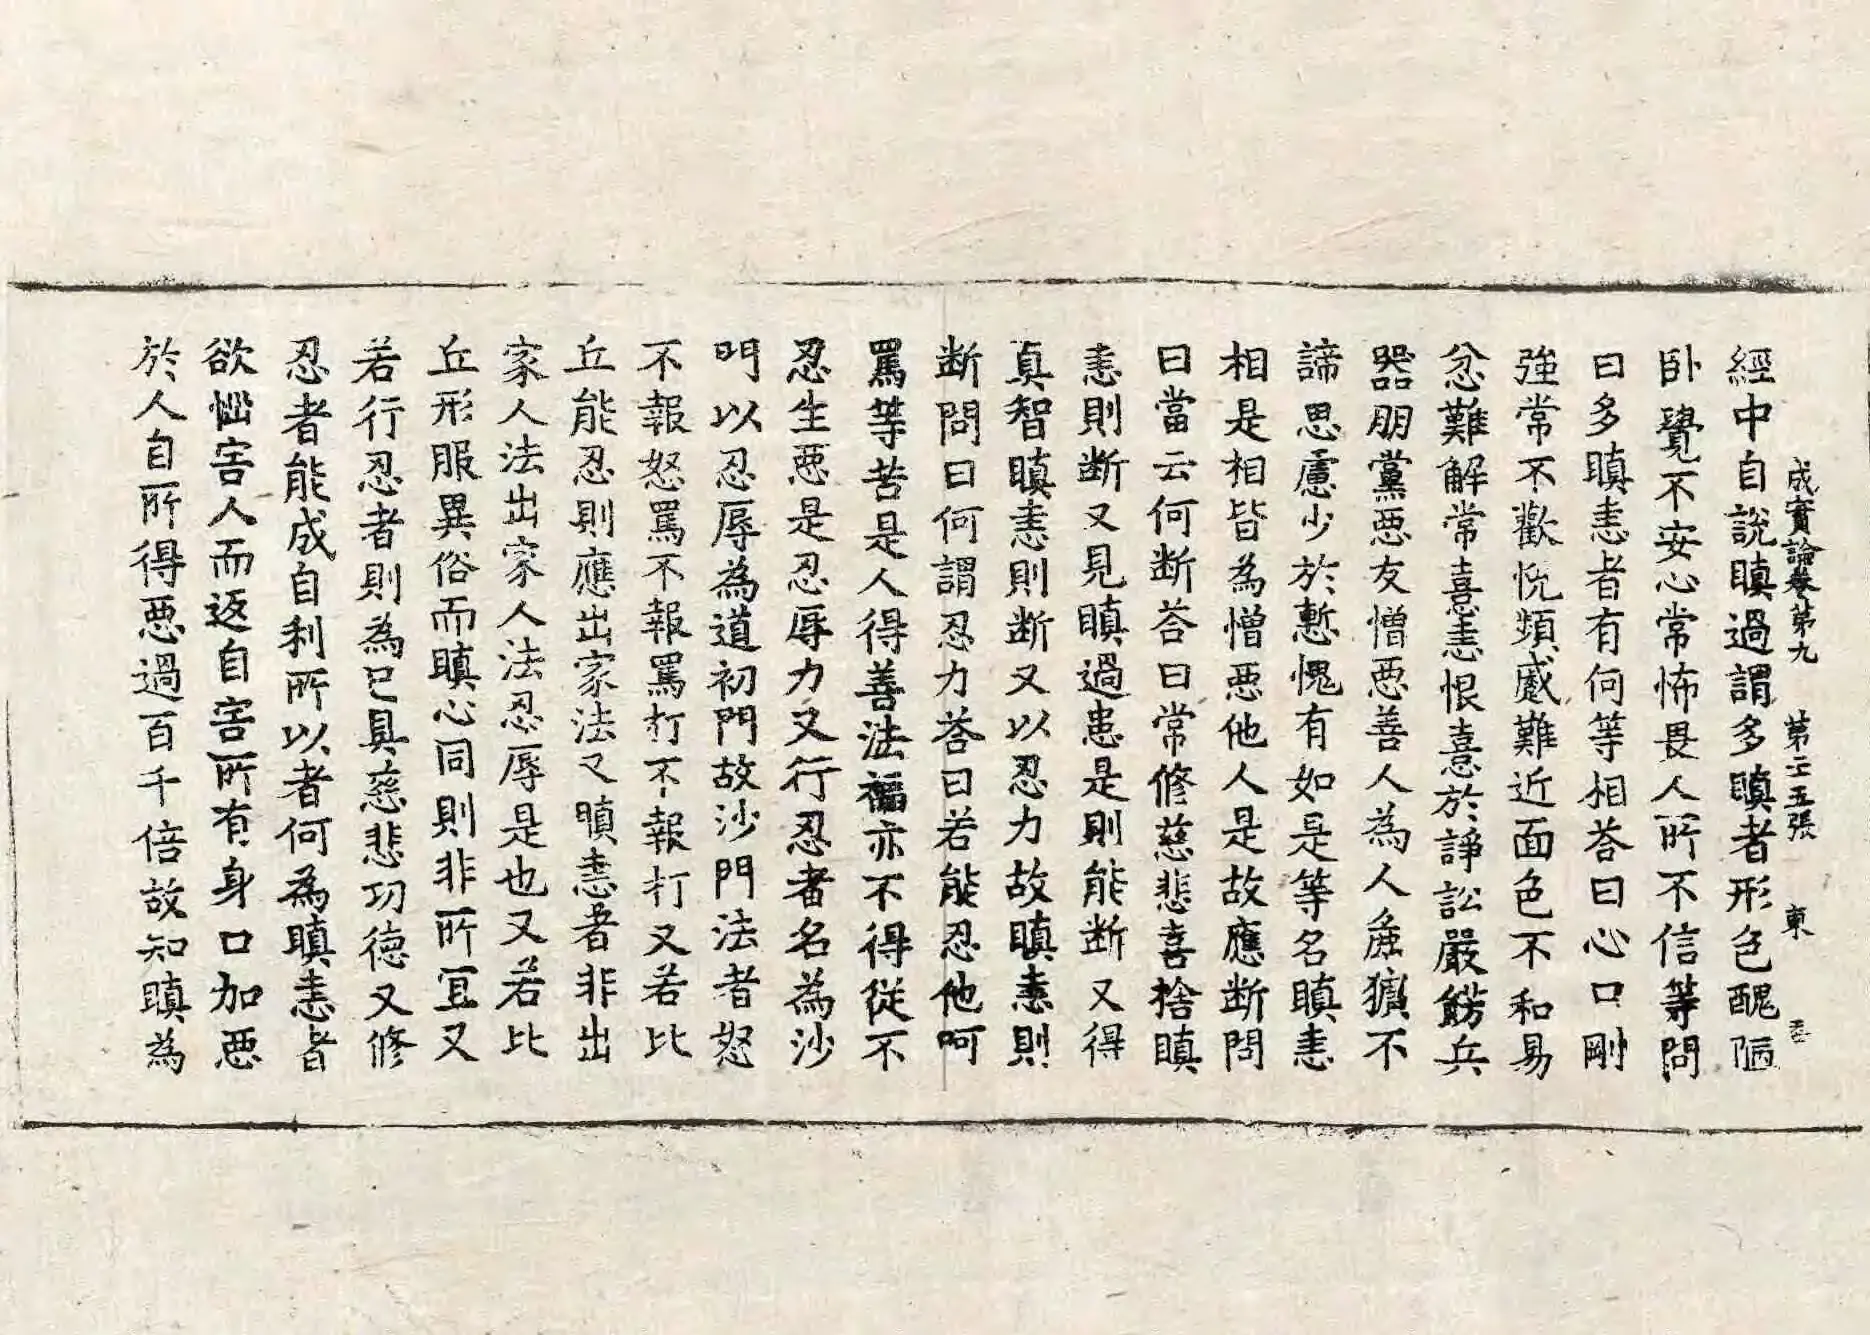 成實論卷第九　第二五張　東
經中自說瞋過謂多瞋者形色醜陋
卧覺不安心常怖畏人所不信等問
曰多瞋恚者有何等相荅曰心口剛
強常不歡悅頻慼難近面色不和易
忿難解常憙恚恨憙於諍訟嚴餝兵
器朋黨惡友憎惡善人為人麁獷不
諦思慮少於慙愧有如是等名瞋恚
相是相皆為憎惡他人是故應断問
曰當云何断荅曰常修慈悲喜捨瞋
恚則断又見瞋過患是則能断又得
真智瞋恚則断又以忍力故瞋恚則
断問曰何謂忍力荅曰若能忍他呵
罵等苦是人得善法福亦不得從不
忍生惡是忍辱力又行忍者名為沙
門以忍辱為道初門故沙門法者怒
不報怒罵不報罵打不報打又若比
丘能忍則應出家法又瞋恚者非出
家人法出家人法忍辱是也又若比
丘形服異俗而瞋心同則非所冝又
若行忍者則為已具慈悲功德又修
忍者能成自利所以者何為瞋恚者
欲惱害人而返自害所有身口加惡
於人自所得惡過百千倍故知瞋為